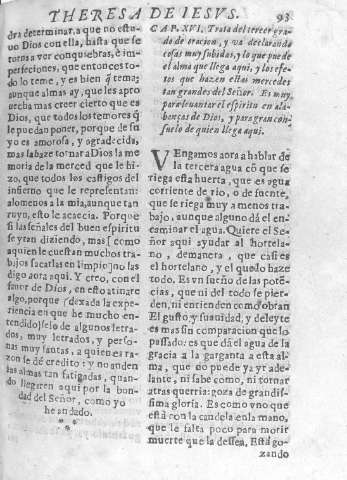 THERESA DE IESVS. 93
dra determinar, a que no estu-
uo Dios con ella, hasta que se
torna a ver con quiebras, è im-
perfeciones, que entonces to-
do lo teme, y es bien q̃ tema;
aunque almas ay, que les apro
uecha mas creer cierto que es
Dios, que todos los temores q̃
le puedan poner, porque de su
yo es amorosa, y agradecida,
mas la haze tornar a Dios la me
moria de la merced que le hi-
zo, que todos los castigos del
infierno que le representan:
alomenos a la mia, aunque tan
ruyn, esto le acaecia. Porque
si las señales del buen espiritu
se yran diziendo, mas [como
a quien le cuestan muchos tra-
bajos sacarlas en limpio] no las
digo aora aqui. Y creo, con el
fauor de Dios, en esto atinare
algo, porque (dexada la expe-
riencia en que he mucho en-
tendido) selo de algunos letra-
dos, muy letrados, y perso-
nas muy santas, a quien es ra-
zon se dè credito: y no anden
las almas tan fatigadas, quan-
do llegaren aqui por la bon-
dad del Señor, como yo
he andado.
CAP. XVI. Trata del tercer gra-
do de oracion, y va declarando
cosas muy subidas, y lo que puede
el alma que llega aqui, y los efe-
tos que hazen estas mercedes
tan grandes del Señor. Es muy
para leuantar el espiritu en ala-
banças de Dios, y para gran con-
suelo de quien llega aqui.
VEngamos aora a hablar de
la tercera agua cõ que se
riega esta huerta, que es agua
corriente de rio, o de fuente,
que se riega muy a menos tra-
bajo, aunque alguno dà el en-
caminar el agua. Quiere el Se-
ñor aqui ayudar al hortela-
no, de manera, que casi es
el hortelano, y el que lo haze
todo. Es vn sueño de las potẽ-
cias, que ni del todo se pier-
den, ni entienden como obran
El gusto, y suauidad, y deleyte
es mas sin comparacion que lo
passado: es que dà el agua de la
gracia a la garganta a esta al-
ma, que no puede ya yr ade-
lante, ni sabe como, ni tornar
atras querria: goza de grandis-
sima gloria. Es como vno que
està con la candela en la mano,
que le falta poco para morir
muerte que la dessea. Està go-
zando